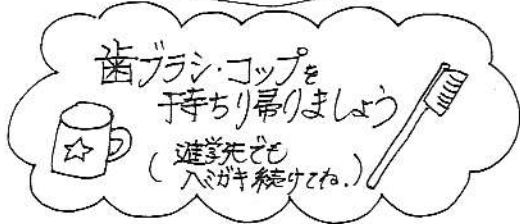 歯ブラシ・コップを
持ち帰りましょう
(進学先でも
ハミガキ続けてね。)